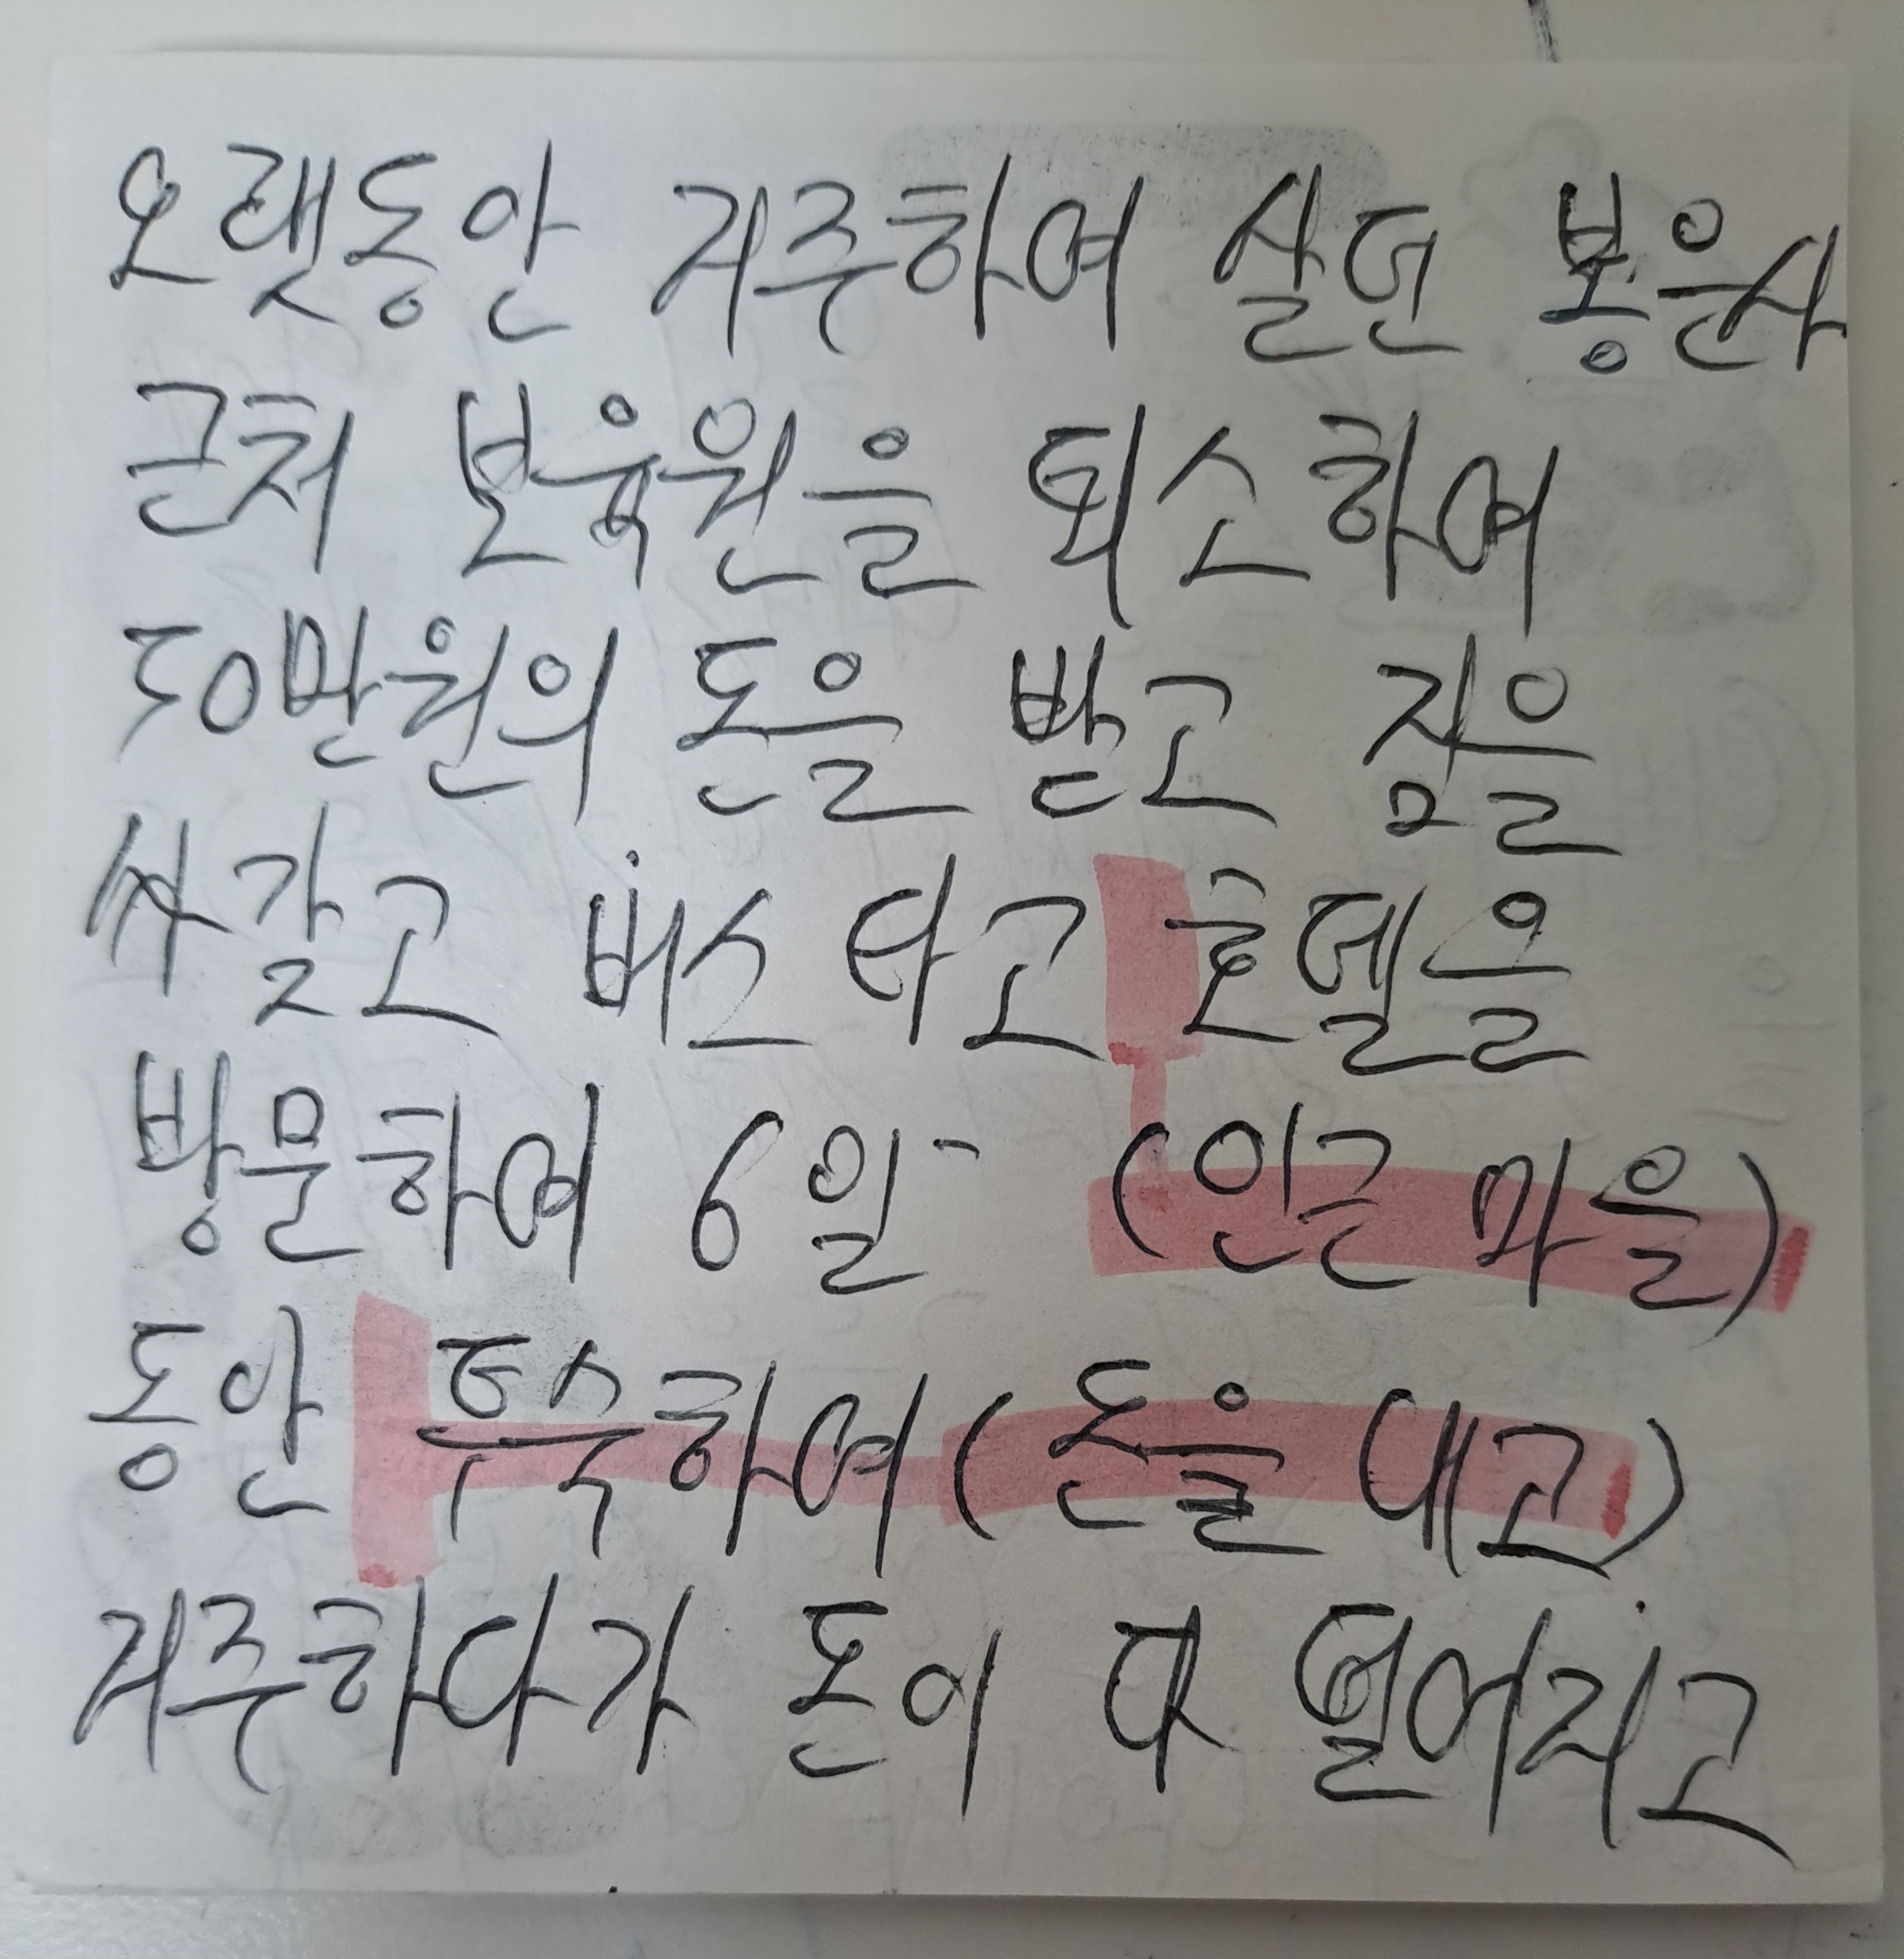 오랫동안 거주하여 살던 봉은사
근처 보육원을 퇴소하여
50만원의 돈을 받고 짐을
싸갈고 버스 타고 호텔을
방문하여 6일 (인근 마을)
동안 투숙하여 (돈을 내고)
거주하다가 돈이 다 떨어지고